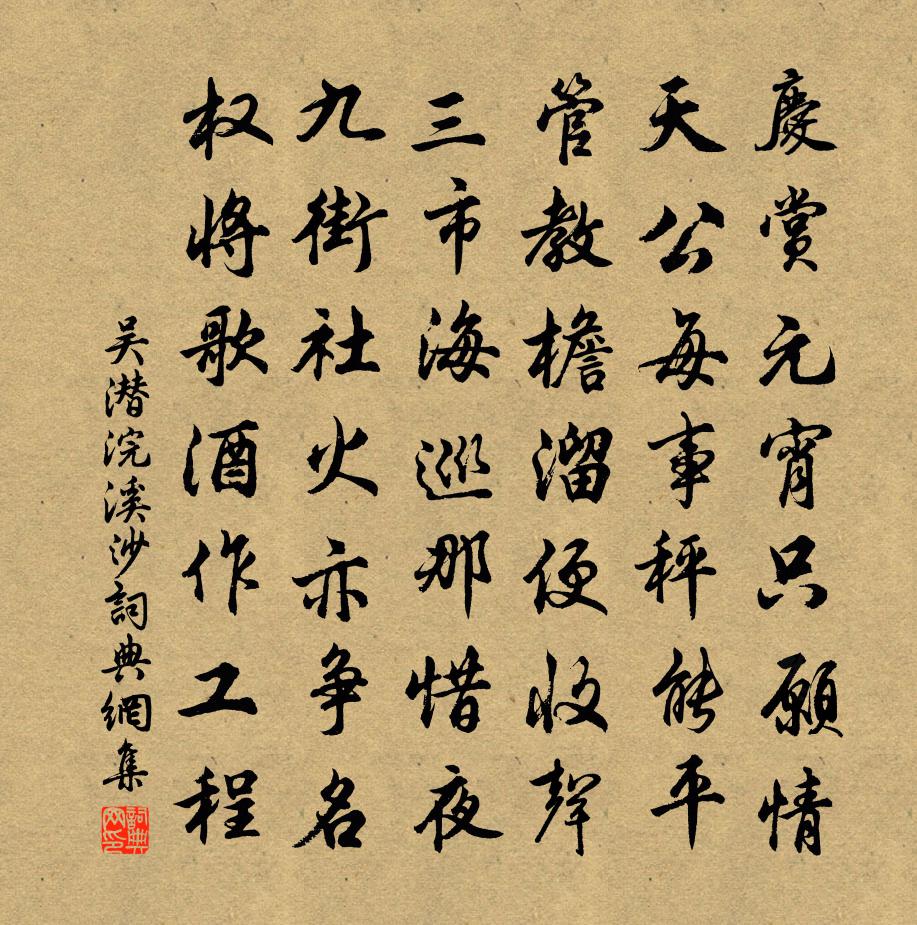 慶賞元宵只願情
天公每事秤能平
管教檐溜便收聲
三市海巡那惜夜
九街社火亦争名
权將歌酒作工程
吴潜浣溪沙詞典網集
詞典網印